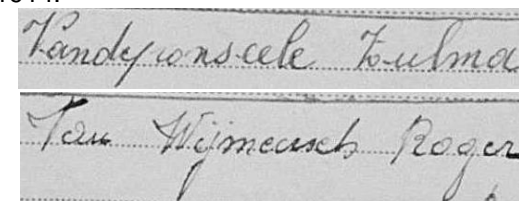 Vandeponseele Zulma
Van Wijmeersch Roger